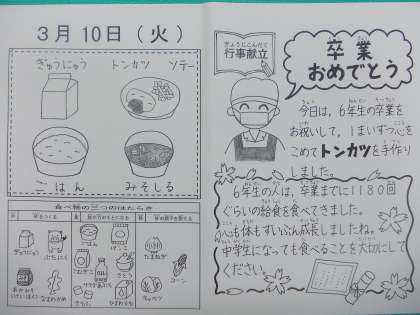 3月10日（火）
ぎゅうにゅう
トンカツ ソテー
ごはん
みそしる
食べ物の三つのはたらき
ぎゅうにゅう
ぶたにく
ごはん
パンこ
こむぎこ
さとう
たまねぎ
キャベツ
コーン
行事献立
ぎょうじこんだて
卒業
おめでとう
今日は、6年生の卒業を
お祝いして、1まいずつ心を
こめてトンカツを手作り
しました。
6年生の人は、卒業までに1180回
ぐらいの給食を食べてきました。
心も体もずいぶん成長しましたね。
中学生になっても食べることを大切にして
ください。